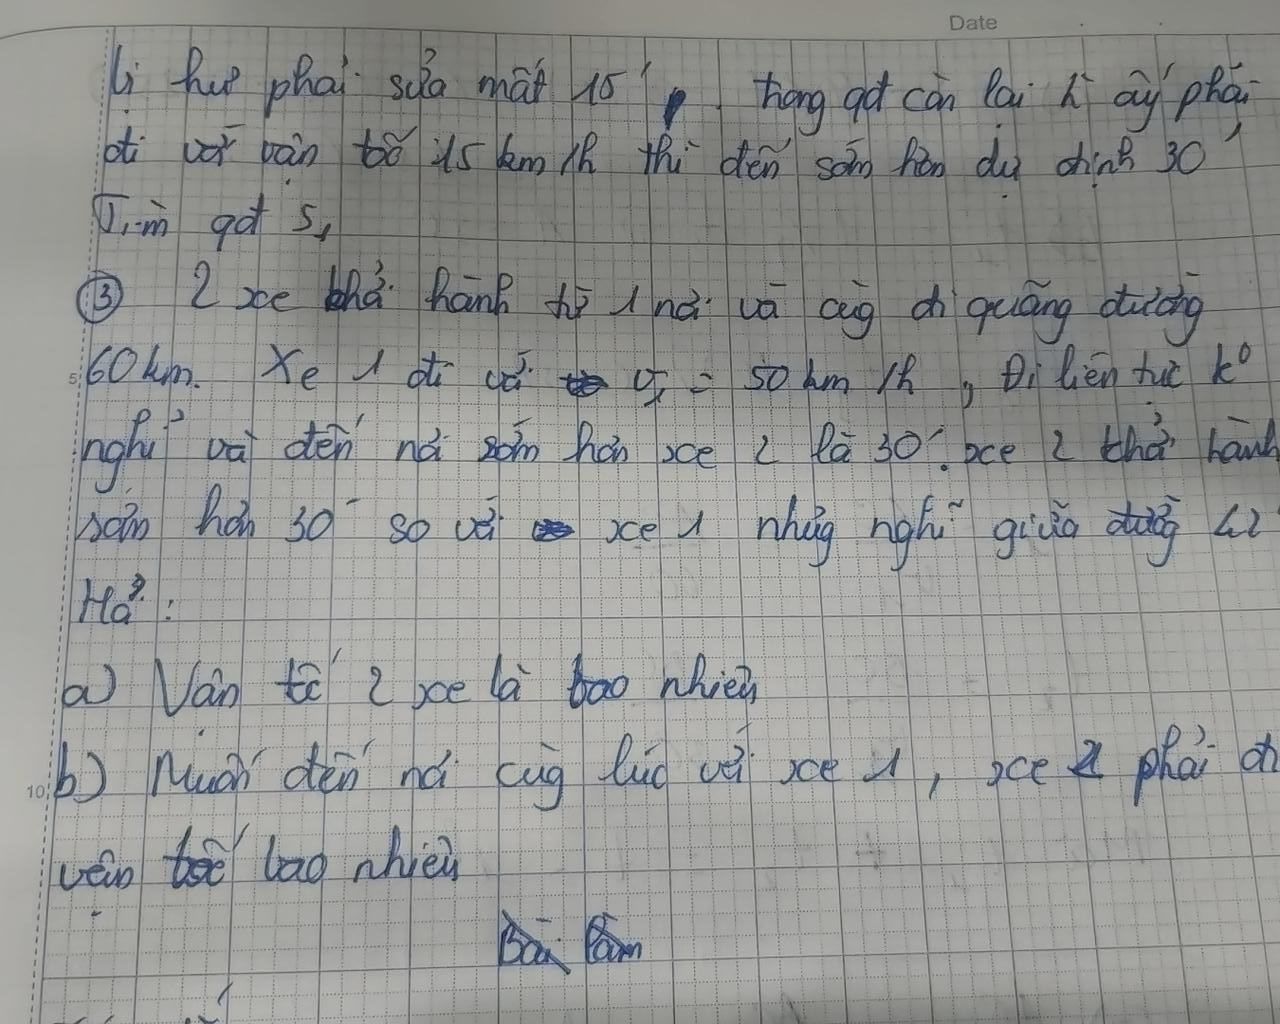 Date
bị hư phải sửa mất 15' trong qđ còn lại ấy phải
đi với vận tốc 15 km/h thì đến sớm hơn dự định 30'
Tìm qđ S₁
③ 2 xe khởi hành từ 1 nơi và cùng đi quãng đường
5 60 km. Xe 1 đi với v₁ = 50 km/h, Đi liên tục k⁰
nghỉ và đến nơi sớm hơn xe 2 là 30'. xe 2 khởi hành
sớm hơn 30' so với xe 1 nhưng nghỉ giữa đường
Hỏi:
a) Vận tốc 2 xe là bao nhiêu
10 b) Muốn đến nơi cùng lúc với xe 1, xe 2 phải đi
vận tốc bao nhiêu
Bài làm